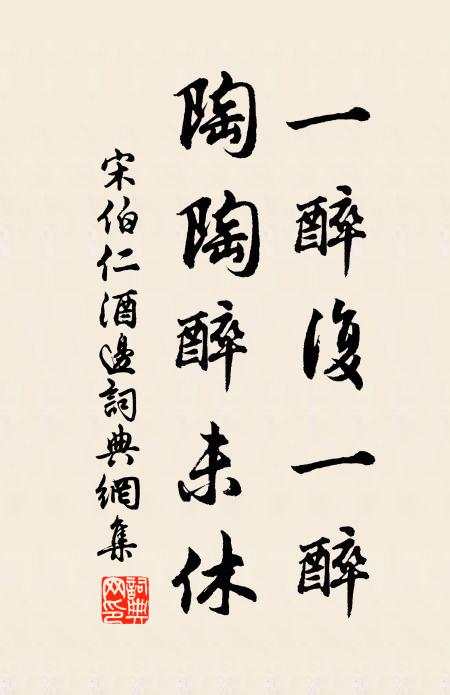 一醉復一醉
陶陶醉未休
宋伯仁酒邊詞典網集
詞典網印